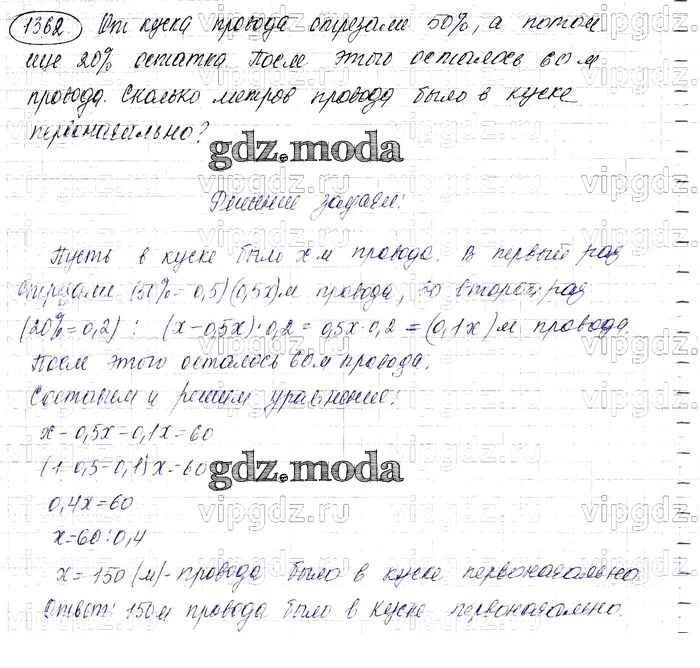 1362. От куска провода отрезали 50%, а потом
еще 20% остатка. После этого осталось 60 м
провода. Сколько метров провода было в куске
первоначально?
gdz.moda
Решение задачи:
Пусть в куске было x м провода. В первый раз
отрезали (50%=0,5)(0,5x)м провода, во второй раз
(20%=0,2): (x-0,5x)·0,2=0,5x·0,2=(0,1x)м провода.
После этого осталось 60м провода.
Составим и решим уравнение:
x-0,5x-0,1x=60
(1-0,5-0,1)x=60
gdz.moda
0,4x=60
x=60:0,4
x=150(м)-провода было в куске первоначально.
Ответ: 150м провода было в куске первоначально.
vipgdz.ru